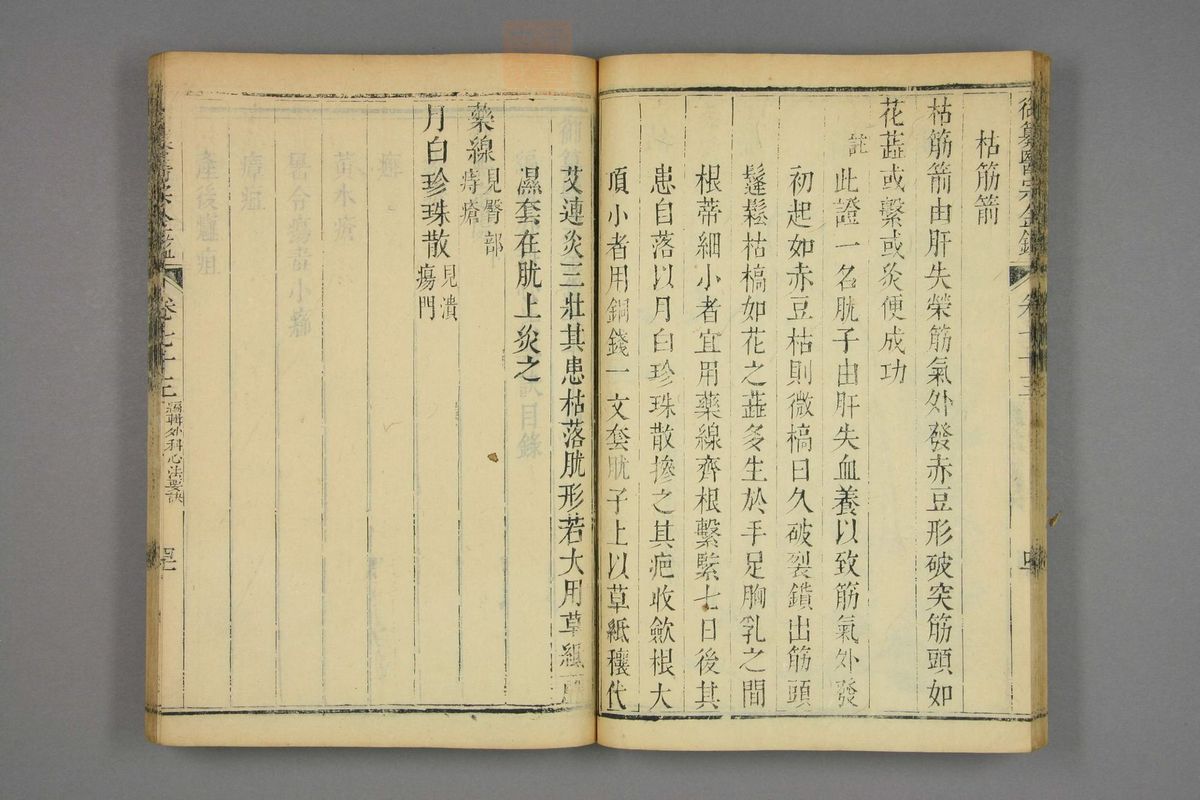 御纂醫宗金鑑 卷七十三
枯筋箭
枯筋箭由肝失榮筋氣外發赤豆形破突筋頭如
花蕋或繫或灸便成功
註
此證一名肬子由肝失血養以致筋氣外發
初起如赤豆枯則微槁日久破裂鑽出筋頭
鬔鬆枯槁如花之蕋多生於手足胸乳之間
根蒂細小者宜用藥線齊根繫緊七日後其
患自落以月白珍珠散摻之其疤收歛根大
頂小者用銅錢一文套肬子上以草紙穰代
艾連灸三壯其患枯落肬形若大用草紙
濕套在肬上灸之
藥線見臀部痔瘡
月白珍珠散見潰瘍門
卷七十三 編輯外科心法要訣